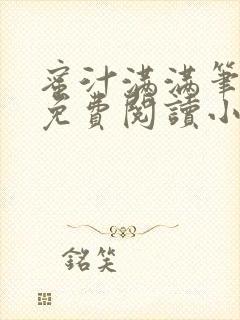 蜜汁满满筆
免費閱讀小
銘笑